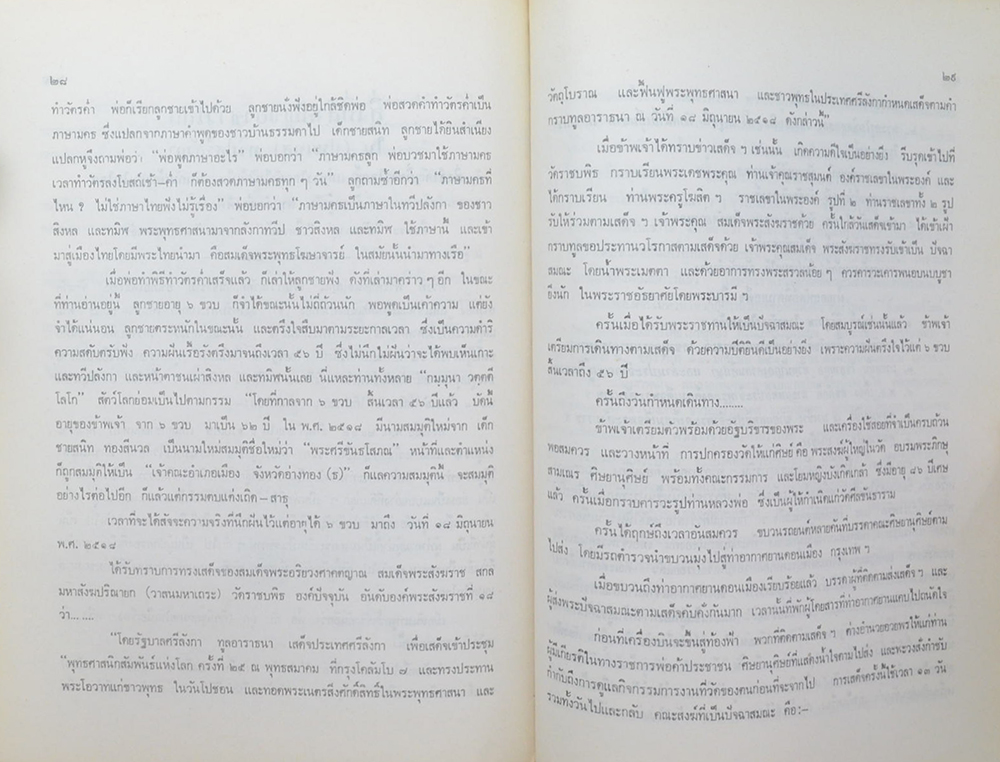 ๒๘
ทำวัตรค่ำ พ่อก็เรียกลูกชายเข้าไปด้วย ลูกชายนั่งฟังอยู่ใกล้ชิดพ่อ พ่อสวดคำทำวัตรค่ำเป็น
ภาษามคธ ซึ่งแปลกจากภาษาคำพูดของชาวบ้านธรรมดาไป เด็กชายสนิท ลูกชายได้ยินสำเนียง
แปลกหูจึงถามพ่อว่า "พ่อพูดภาษาอะไร" พ่อบอกว่า "ภาษามคธลูก พ่อบวชมาใช้ภาษามคธ
เวลาทำวัตรลงโบสถ์เช้า–ค่ำ ก็ต้องสวดภาษามคธทุก ๆ วัน" ลูกถามซ้ำอีกว่า "ภาษามคธที่
ไหน ? ไม่ใช่ภาษาไทยฟังไม่รู้เรื่อง" พ่อบอกว่า "ภาษามคธเป็นภาษาในทวีปลังกา ของชาว
สิงหล และทมิฬ พระพุทธศาสนามาจากลังกาทวีป ชาวสิงหล และทมิฬ ใช้ภาษานี้ และเข้า
มาสู่เมืองไทยโดยมีพระไทยนำมา คือสมเด็จพระพุทธโฆษาจารย์ ในสมัยนั้นนำมาทางเรือ"
เมื่อพ่อทำพิธีทำวัตรค่ำเสร็จแล้ว ก็เล่าให้ลูกชายฟัง ดังที่เล่ามาคราว ๆ อีก ในขณะ
ที่ท่านอ่านอยู่นี้ ลูกชายอายุ ๖ ขวบ ก็จำได้ขณะนั้นไม่ถี่ถ้วนนัก พอพูดเป็นเค้าความ แต่ยัง
จำได้แน่นอน ลูกชายตระหนักในขณะนั้น และตรึงใจสืบมาตามระยะกาลเวลา ซึ่งเป็นความดำริ
ความสดับครับฟัง ความฝันเรื้อรังตรึงมาจนถึงเวลา ๕๖ ปี ซึ่งไม่นึกไม่ฝันว่าจะได้พบเห็นเกาะ
และทวีปลังกา และหน้าตาชนเผ่าสิงหล และทมิฬนั้นเลย นี่แหละท่านทั้งหลาย "กมฺมุนา วตฺตตี
โลโก" สัตว์โลกย่อมเป็นไปตามกรรม "โดยที่กาลจาก ๖ ขวบ สิ้นเวลา ๕๖ ปีแล้ว บัดนี้
อายุของข้าพเจ้า จาก ๖ ขวบ มาเป็น ๖๒ ปี ใน พ.ศ. ๒๕๑๘ มีนามสมมุติใหม่จาก เด็ก
ชายสนิท ทองสีนวล เป็นนามใหม่สมมุติชื่อใหม่ว่า "พระศรีขันธโสภณ" หน้าที่และตำแหน่ง
ก็ถูกสมมุติให้เป็น "เจ้าคณะอำเภอเมือง จังหวัดอ่างทอง (ธ)" ก็แลความสมมุตินี้ จะสมมุติ
อย่างไรต่อไปอีก ก็แล้วแต่กรรมตบแต่งเถิด – สาธุ
เวลาที่จะได้สัจจะความจริงที่นึกฝันไว้แต่อายุได้ ๖ ขวบ มาถึง วันที่ ๑๘ มิถุนายน
พ.ศ. ๒๕๑๘
ได้รับทราบการทรงเสด็จของสมเด็จพระอริยวงศาคตญาณ สมเด็จพระสังฆราช สกล
มหาสังฆปริณายก (วาสนมหาเถระ) วัดราชบพิธ องค์ปัจจุบัน อันดับองค์พระสังฆราชที่ ๑๘
ว่า.......
"โดยรัฐบาลศรีลังกา ทูลอาราธนา เสด็จประเทศศรีลังกา เพื่อเสด็จเข้าประชุม
"พุทธศาสนิกสัมพันธ์แห่งโลก ครั้งที่ ๒๕ ณ พุทธสมาคม ที่กรุงโคลัมโบ ๗ และทรงประทาน
พระโอวาทแก่ชาวพุทธ ในวันโปซอน และทอดพระเนตรสิ่งศักดิ์สิทธิ์ในพระพุทธศาสนา และ
๒๙
วัตถุโบราณ และฟื้นฟูพระพุทธศาสนา และชาวพุทธในประเทศศรีลังกากำหนดเสด็จตามคำ
กราบทูลอาราธนา ณ วันที่ ๑๘ มิถุนายน ๒๕๑๘ ดังกล่าวนี้"
เมื่อข้าพเจ้าได้ทราบข่าวเสด็จ ๆ เช่นนั้น เกิดความดีใจเป็นอย่างยิ่ง รีบรุดเข้าไปที่
วัดราชบพิธ กราบเรียนพระเดชพระคุณ ท่านเจ้าคุณราชสุมนต์ องค์ราชเลขาในพระองค์ และ
ได้กราบเรียน ท่านพระครูโฆสิต ๆ ราชเลขาในพระองค์ รูปที่ ๒ ท่านราชเลขาทั้ง ๒ รูป
รับให้ร่วมตามเสด็จ ๆ เจ้าพระคุณ สมเด็จพระสังฆราชด้วย ครั้นใกล้วันเสด็จเข้ามา ได้เข้าเฝ้า
กราบทูลขอประทานวโรกาสตามเสด็จด้วย เจ้าพระคุณสมเด็จ พระสังฆราชทรงรับเข้าเป็น ปัจฉา
สมณะ โดยน้ำพระเมตตา และด้วยอาการทรงพระสรวลน้อย ๆ ควรคารวะเคารพนอบนบบูชา
ยิ่งนัก ในพระราชอัธยาศัยโดยพระบารมี ๆ
ครั้นเมื่อได้รับพระราชทานให้เป็นปัจฉาสมณะ โดยสมบูรณ์เช่นนั้นแล้ว ข้าพเจ้า
เตรียมการเดินทางตามเสด็จ ด้วยความปีติยินดีเป็นอย่างยิ่ง เพราะความฝันตรึงใจไว้แต่ ๖ ขวบ
สิ้นเวลาถึง ๕๖ ปี
ครั้นถึงวันกำหนดเดินทาง........
ข้าพเจ้าเตรียมตัวพร้อมด้วยอัฐบริขารของพระ และเครื่องใช้สอยที่จำเป็นครบถ้วน
พอสมควร และวางหน้าที่ การปกครองวัดให้แก่ศิษย์ คือ พระสงฆ์ผู้ใหญ่ในวัด อบรมพระภิกษุ
สามเณร ศิษยานุศิษย์ พร้อมทั้งคณะกรรมการ และโยมหญิงบังเกิดเกล้า ซึ่งมีอายุ ๘๖ ปีเศษ
แล้ว ครั้นเมื่อกราบคารวะรูปท่านหลวงพ่อ ซึ่งเป็นผู้ให้กำเนิดแก่วัดศีลขันธาราม
ครั้นได้ฤกษ์ถึงเวลาอันสมควร ขบวนรถยนต์หลายคันที่บรรดาคณะศิษยานุศิษย์ตาม
ไปส่ง โดยมีรถตำรวจนำขบวนมุ่งไปสู่ท่าอากาศยานดอนเมือง กรุงเทพ ฯ
เมื่อขบวนถึงท่าอากาศยานดอนเมืองเรียบร้อยแล้ว บรรดาผู้ที่ติดตามส่งเสด็จ ๆ และ
ผู้ส่งพระปัจฉาสมณะตามเสด็จคับคั่งกันมาก เวลานั้นที่พักผู้โดยสารที่ท่าอากาศยานแคบไปถนัดใจ
ก่อนที่เครื่องบินจะขึ้นสู่ท้องฟ้า พวกที่ติดตามเสด็จ ๆ ต่างอำนวยอวยพรให้แก่ท่าน
ผู้มีเกียรติในทางราชการพ่อค้าประชาชน ศิษยานุศิษย์ที่แสดงน้ำใจตามไปส่ง และพะวงสั่งกำชับ
กำกับถึงการดูแลกิจกรรมการงานที่วัดของตนก่อนที่จะจากไป การเสด็จครั้งนี้ใช้เวลา ๑๓ วัน
รวมทั้งวันไปและกลับ คณะสงฆ์ที่เป็นปัจฉาสมณะ คือ:–